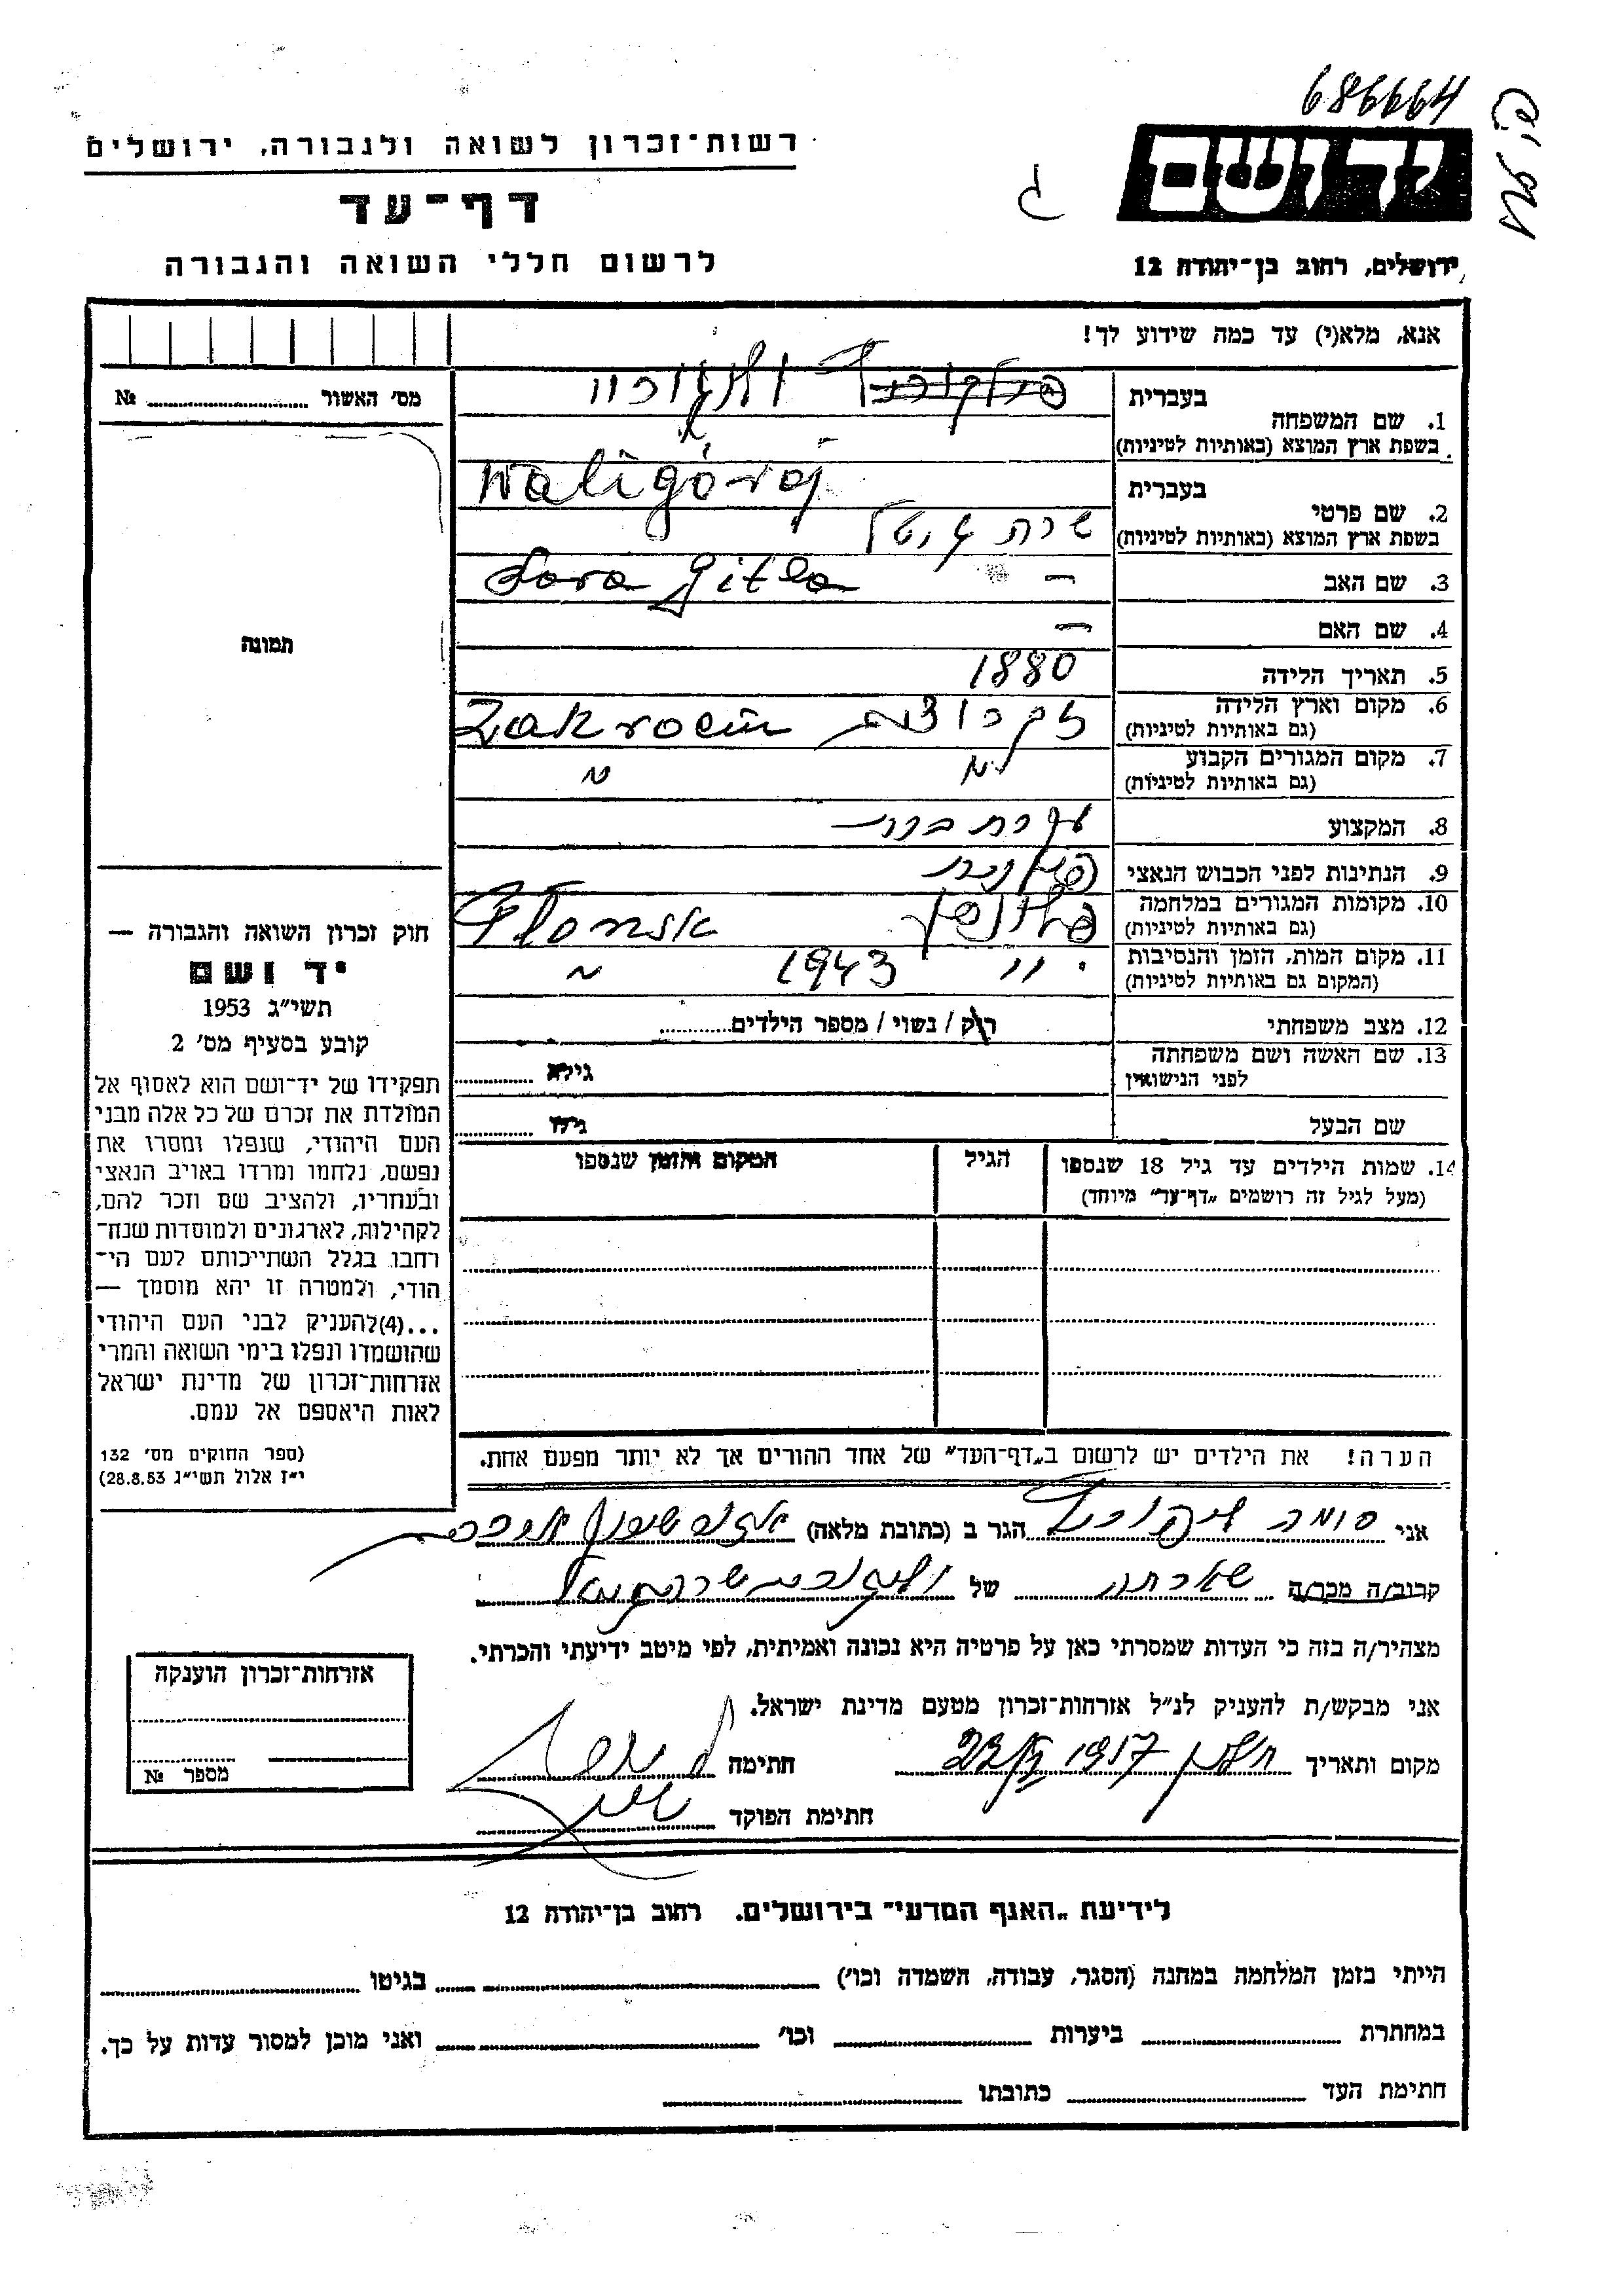 686664
רשות־זכרון לשואה ולגבורה, ירושלים
יד ושם
דף־עד
ג
לרשום חללי השואה והגבורה
ירושלים, רחוב בן־יהודה 12
אנא, מלא(י) עד כמה שידוע לך!
מס' האשור № 
1. שם המשפחה
בעברית
בשפת ארץ המוצא (באותיות לטיניות)
Waligóraj
2. שם פרטי
בעברית
שרה גיטל
בשפת ארץ המוצא (באותיות לטיניות)
Sora Gitla
3. שם האב –
4. שם האם –
תמונה
5. תאריך הלידה 1880
6. מקום וארץ הלידה
(גם באותיות לטיניות)
Zakrocim
7. מקום המגורים הקבוע
(גם באותיות לטיניות)
8. המקצוע עקרת בית
9. הנתינות לפני הכבוש הנאצי
10. מקומות המגורים במלחמה
(גם באותיות לטיניות)
Plonsk
11. מקום המות, הזמן והנסיבות 1943
(המקום גם באותיות לטיניות)
12. מצב משפחתי רוק / נשוי / מספר הילדים
13. שם האשה ושם משפחתה
לפני הנישואין
גילה
שם הבעל גילו
14. שמות הילדים עד גיל 18 שנספו
(מעל לגיל זה רושמים „דף־עד" מיוחד)
הגיל
המקום והזמן שנספו
חוק זכרון השואה והגבורה —
יד ושם
תשי"ג 1953
קובע בסעיף מס' 2
תפקידו של יד־ושם הוא לאסוף אל
המולדת את זכרם של כל אלה מבני
העם היהודי, שנפלו ומסרו את
נפשם, נלחמו ומרדו באויב הנאצי
ובעוזריו, ולהציב שם וזכר להם,
לקהילות, לארגונים ולמוסדות שנח־
רבו בגלל השתייכותם לעם הי־
הודי, ולמטרה זו יהא מוסמך —
...(4) להעניק לבני העם היהודי
שהושמדו ונפלו בימי השואה והמרי
אזרחות־זכרון של מדינת ישראל
לאות היאספם אל עמם.
(ספר החוקים מס' 132
י"ז אלול תשי"ג 28.8.53)
הערה! את הילדים יש לרשום ב„דף־העד" של אחד ההורים אך לא יותר מפעם אחת.
אני הגר ב (כתובת מלאה)
קרוב/ה מכר/ה של
מצהיר/ה בזה כי העדות שמסרתי כאן על פרטיה היא נכונה ואמיתית, לפי מיטב ידיעתי והכרתי.
אני מבקש/ת להעניק לנ"ל אזרחות־זכרון מטעם מדינת ישראל.
מקום ותאריך חתימה
חתימת הפוקד
אזרחות־זכרון הוענקה
מספר №
לידיעת „האגף המדעי" בירושלים. רחוב בן־יהודה 12
הייתי בזמן המלחמה במחנה (הסגר, עבודה, השמדה וכו') בגיטו
במחתרת ביערות וכו' ואני מוכן למסור עדות על כך.
חתימת העד כתובתו